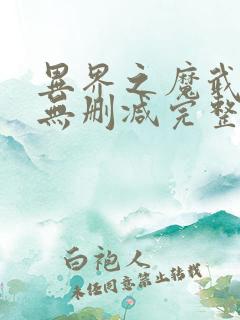 異界之魔武
無删减完整
白袍人
未经同意禁止转载